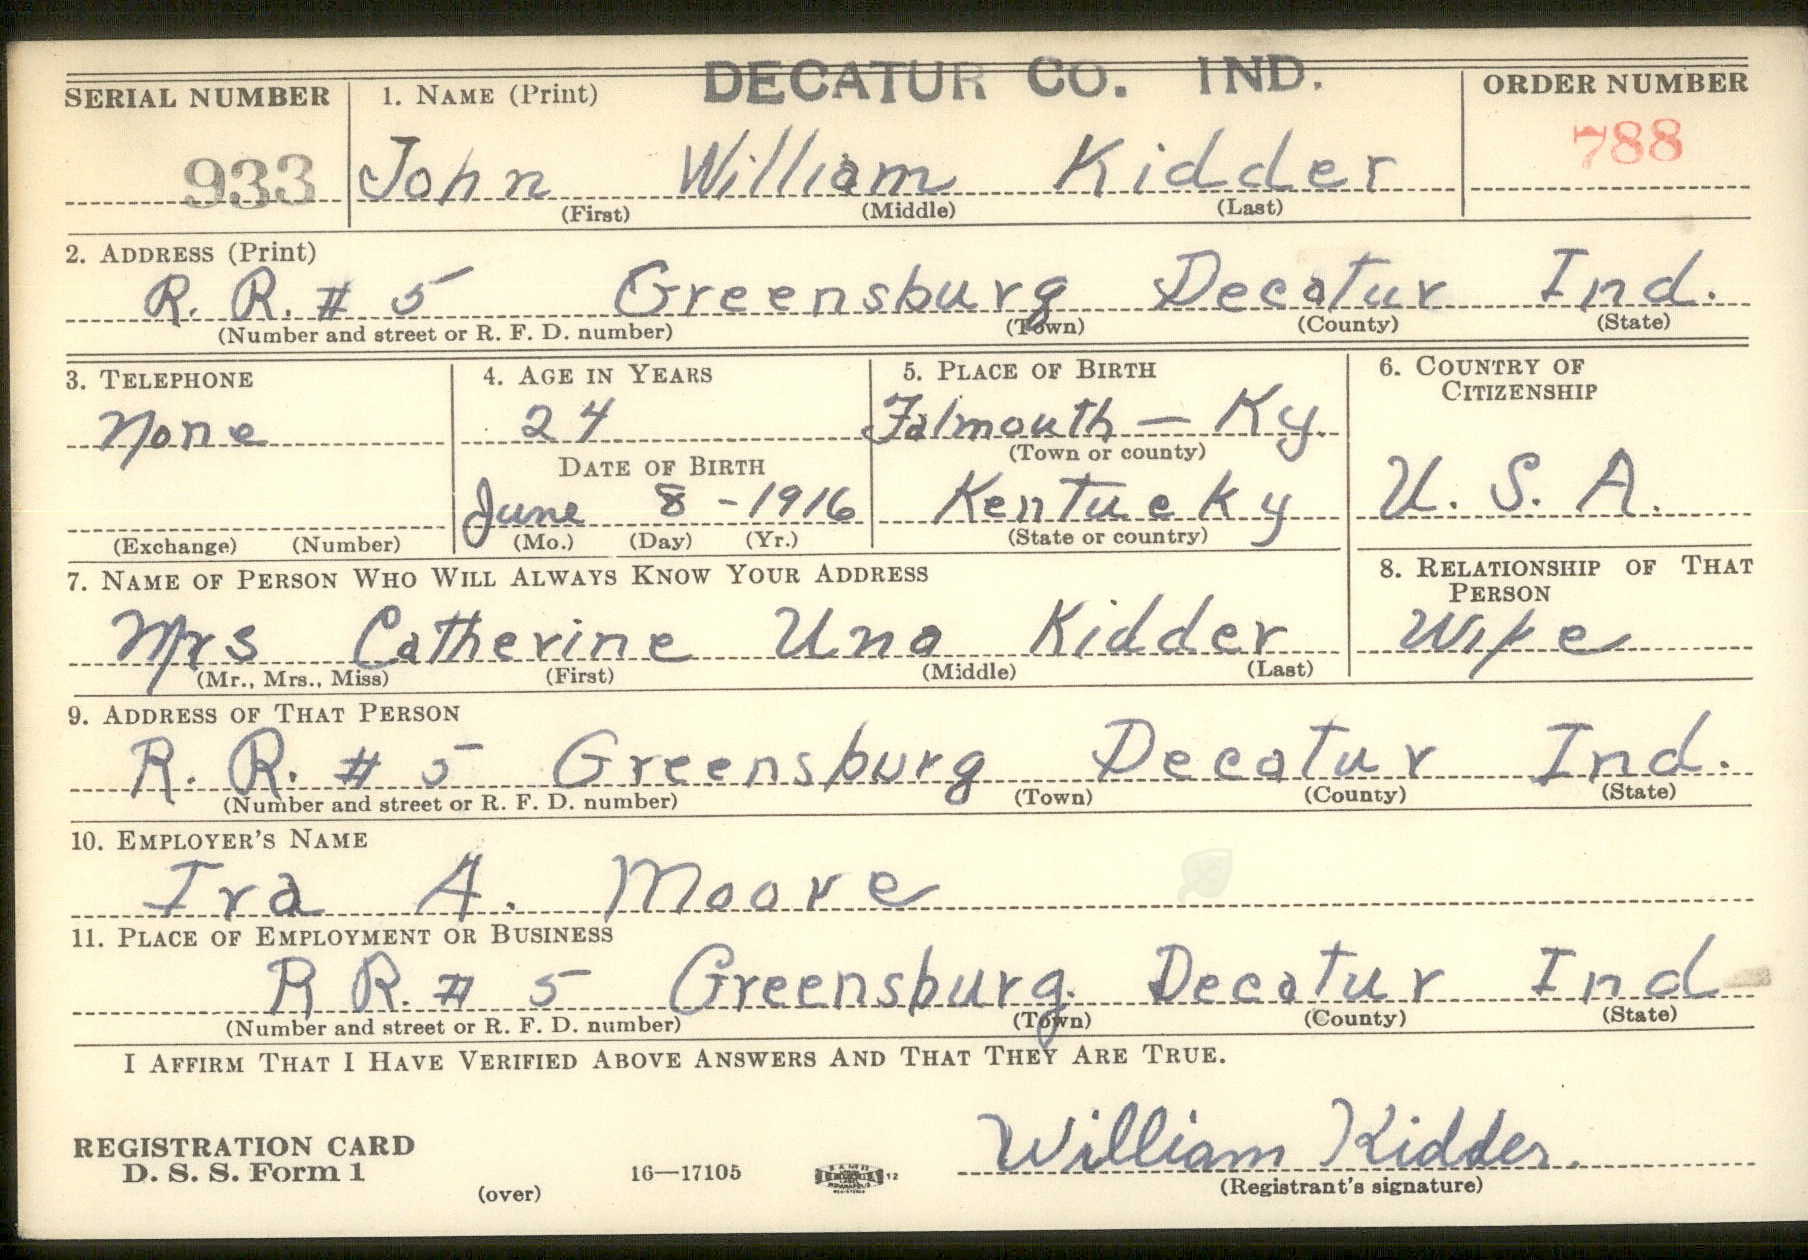 DECATUR CO. IND.
SERIAL NUMBER 1. NAME (Print) ORDER NUMBER
933 John William Kidder 788
(First) (Middle) (Last)
2. ADDRESS (Print)
R. R. # 5 Greensburg Decatur Ind.
(Number and street or R. F. D. number) (Town) (County) (State)
3. TELEPHONE 4. AGE IN YEARS 5. PLACE OF BIRTH 6. COUNTRY OF CITIZENSHIP
None 24 Falmouth — Ky.
(Town or county)
DATE OF BIRTH
June 8 - 1916 Kentucky U. S. A.
(Exchange) (Number) (Mo.) (Day) (Yr.) (State or country)
7. NAME OF PERSON WHO WILL ALWAYS KNOW YOUR ADDRESS 8. RELATIONSHIP OF THAT PERSON
Mrs Catherine Una Kidder Wife
(Mr., Mrs., Miss) (First) (Middle) (Last)
9. ADDRESS OF THAT PERSON
R. R. # 5 Greensburg Decatur Ind.
(Number and street or R. F. D. number) (Town) (County) (State)
10. EMPLOYER'S NAME
Ira A. Moore
11. PLACE OF EMPLOYMENT OR BUSINESS
R R. # 5 Greensburg. Decatur Ind
(Number and street or R. F. D. number) (Town) (County) (State)
I AFFIRM THAT I HAVE VERIFIED ABOVE ANSWERS AND THAT THEY ARE TRUE.
William Kidder.
REGISTRATION CARD
D. S. S. Form 1 16—17105 12
(over) (Registrant's signature)